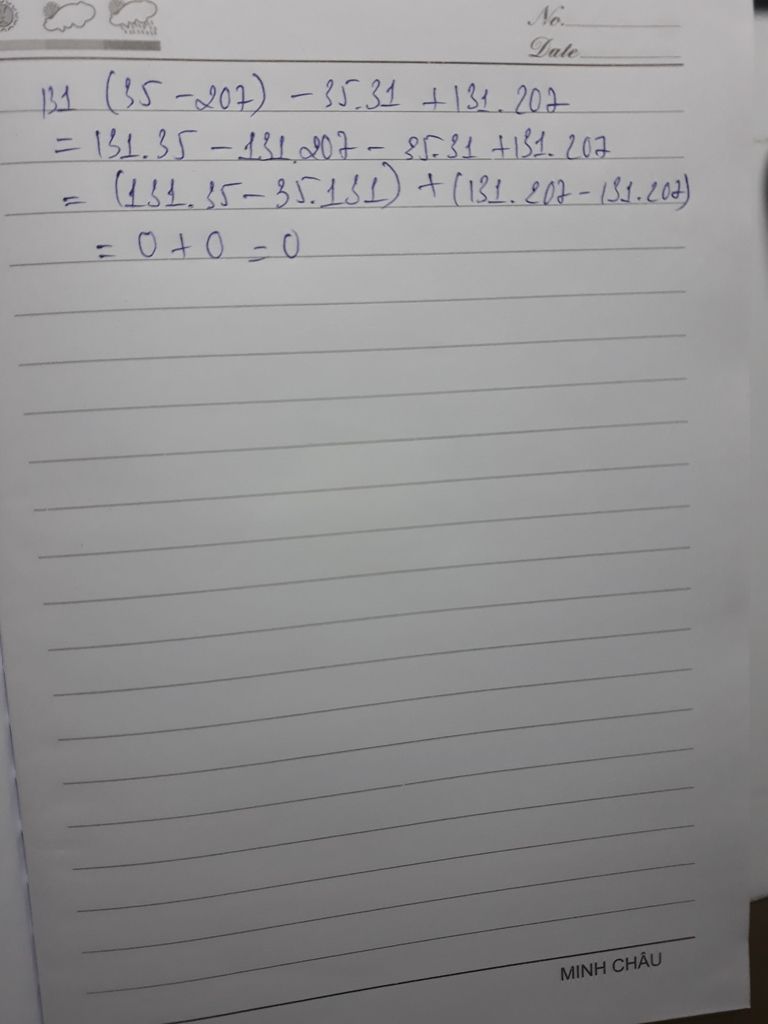 No.
Date
131 (35 - 207) - 35.31 + 131. 207
= 131.35 - 131.207 - 35.31 + 131. 207
= (131. 35 - 35.131) + (131. 207 - 131.207)
= 0 + 0 = 0
MINH CHÂU